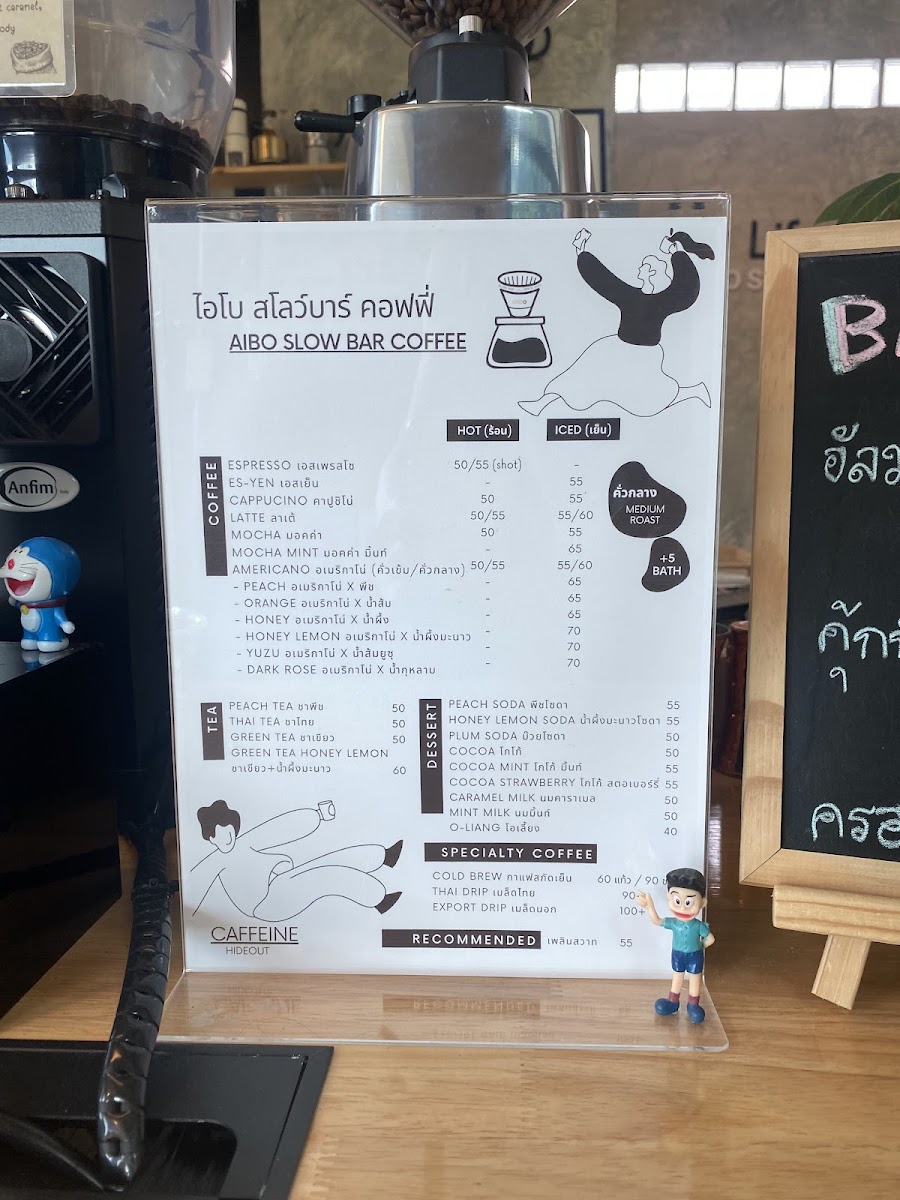 t caramel,
ody
ไอโบ สโลว์บาร์ คอฟฟี่
AIBO SLOW BAR COFFEE
aibo
HOT (ร้อน) ICED (เย็น)
COFFEE
ESPRESSO เอสเพรสโซ 50/55 (shot) -
ES-YEN เอสเย็น - 55
CAPPUCINO คาปูชิโน่ 50 55
LATTE ลาเต้ 50/55 55/60
MOCHA มอคค่า 50 55
MOCHA MINT มอคค่า มิ้นท์ - 65
AMERICANO อเมริกาโน่ (คั่วเข้ม/คั่วกลาง) 50/55 55/60
- PEACH อเมริกาโน่ X พีช - 65
- ORANGE อเมริกาโน่ X น้ำส้ม - 65
- HONEY อเมริกาโน่ X น้ำผึ้ง - 65
- HONEY LEMON อเมริกาโน่ X น้ำผึ้งมะนาว - 70
- YUZU อเมริกาโน่ X น้ำส้มยูซุ - 70
- DARK ROSE อเมริกาโน่ X น้ำกุหลาบ - 70
คั่วกลาง
MEDIUM
ROAST
+5
BATH
TEA
PEACH TEA ชาพีช 50
THAI TEA ชาไทย 50
GREEN TEA ชาเขียว 50
GREEN TEA HONEY LEMON
ชาเขียว+น้ำผึ้งมะนาว 60
DESSERT
PEACH SODA พีชโซดา 55
HONEY LEMON SODA น้ำผึ้งมะนาวโซดา 55
PLUM SODA บ๊วยโซดา 50
COCOA โกโก้ 50
COCOA MINT โกโก้ มิ้นท์ 55
COCOA STRAWBERRY โกโก้ สตอเบอร์รี่ 55
CARAMEL MILK นมคาราเมล 50
MINT MILK นมมิ้นท์ 50
O-LIANG โอเลี้ยง 40
SPECIALTY COFFEE
COLD BREW กาแฟสกัดเย็น 60 แก้ว / 90
THAI DRIP เมล็ดไทย 90
EXPORT DRIP เมล็ดนอก 100+
RECOMMENDED เพลินสวาท 55
CAFFEINE
HIDEOUT
Anfim
B
อัลว
คุ้กก
ครอ